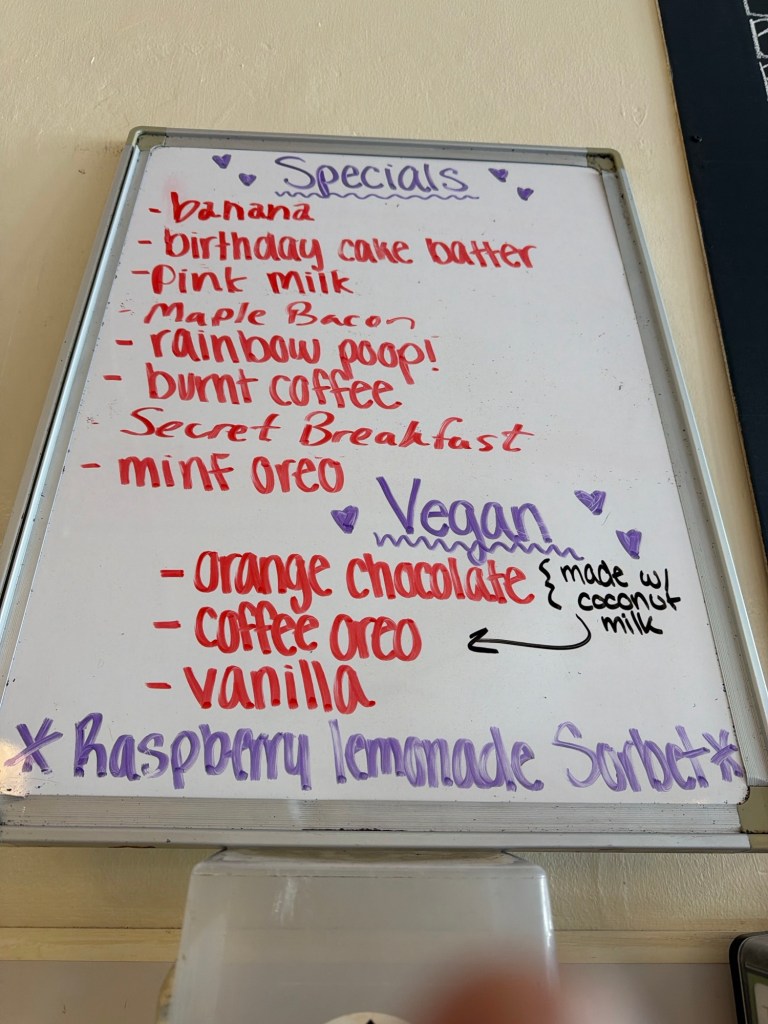 Specials
- banana
- birthday cake batter
- Pink milk
- Maple Bacon
- rainbow poop!
- burnt coffee
- Secret Breakfast
- mint oreo
Vegan
- orange chocolate { made w/
coconut
milk
- coffee oreo
- vanilla
* Raspberry lemonade Sorbet *